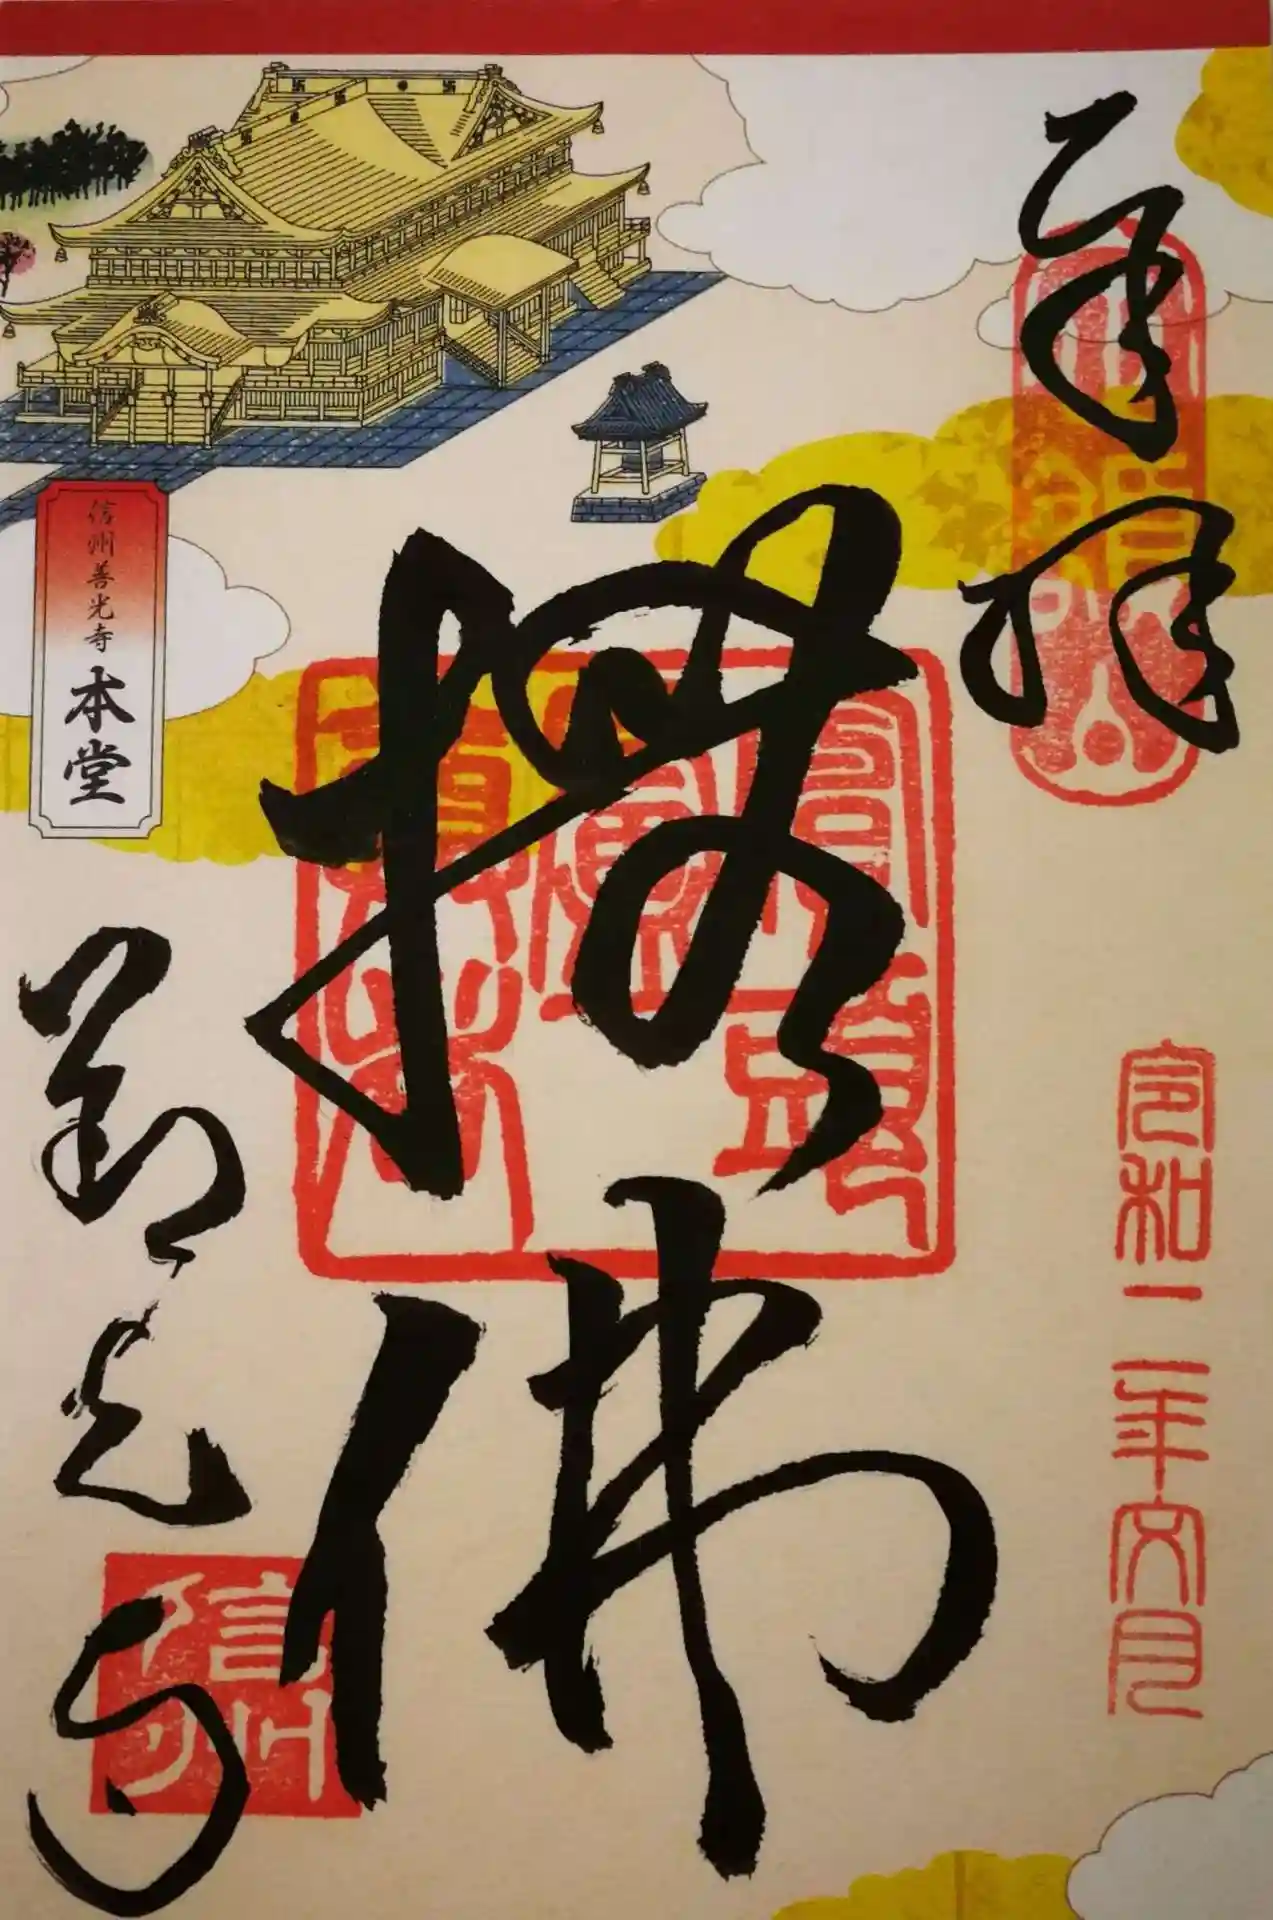 奉拝
令和二年六月
撫佛
信州善光寺 本堂
善光寺
信州